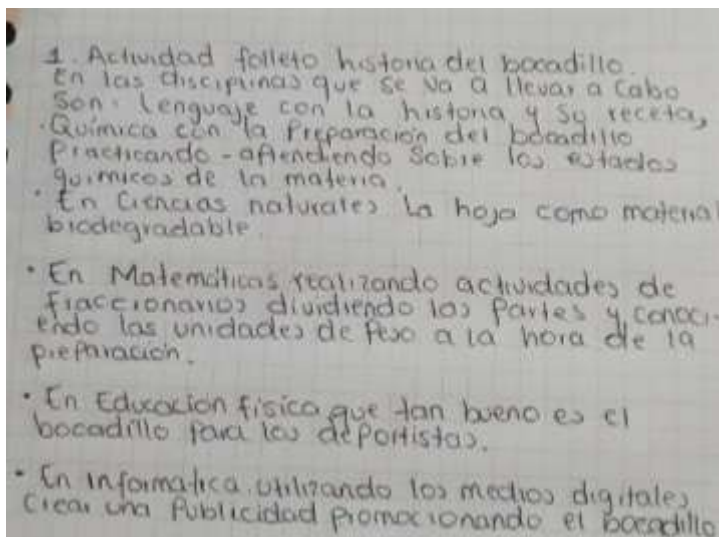 1. Actividad folleto historia del bocadillo.
En las disciplinas que se va a llevar a cabo
Son. Lenguaje con la historia y su receta,
. Química con la Preparación del bocadillo
Practicando - aprendiendo sobre los estados
químicos de la materia.
• En Ciencias naturales La hoja como material
biodegradable.
• En Matemáticas realizando actividades de
fraccionarios dividiendo las Partes y conoci-
endo las unidades de Peso a la hora de la
preparación.
• En Educación física que tan bueno es el
bocadillo para los deportistas.
• En informatica. utilizando los medios digitales
Crear una Publicidad promocionando el bocadillo